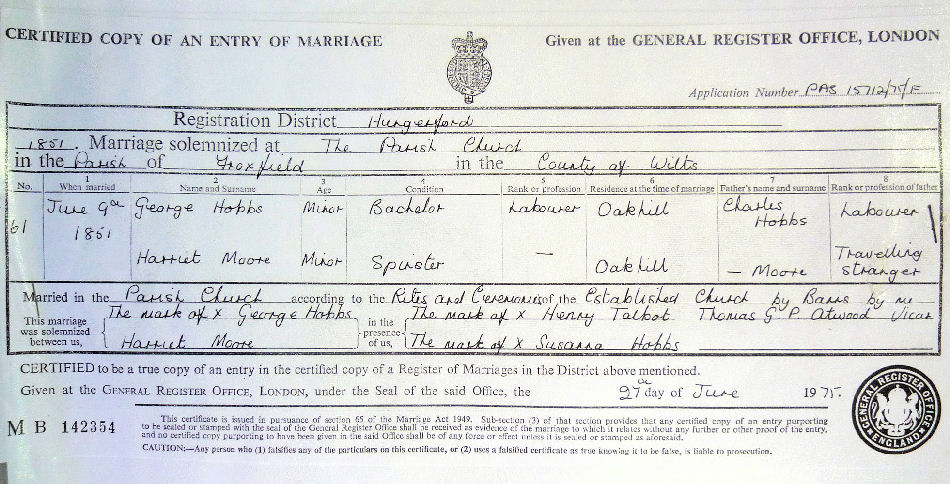 CERTIFIED COPY OF AN ENTRY OF MARRIAGE
Given at the GENERAL REGISTER OFFICE, LONDON
Application Number PAS 15712/75/E
Registration District Hungerford
1851. Marriage solemnized at The Parish Church
in the Parish of Froxfield in the County of Wilts
No. 1 2 3 4 5 6 7 8
When married Name and Surname Age Condition Rank or profession Residence at the time of marriage Father's name and surname Rank or profession of father
61 June 9th 1851 George Hobbs Minor Bachelor Labourer Oakhill Charles Hobbs Labourer
Harriet Moore Minor Spinster — Oakhill — Moore Travelling stranger
Married in the Parish Church according to the Rites and Ceremonies of the Established Church by Banns by me
This marriage was solemnized between us, The mark of X George Hobbs in the presence of us, The mark of X Henry Talbot Thomas G P Atwood Vicar
Harriet Moore The mark of X Susanna Hobbs
CERTIFIED to be a true copy of an entry in the certified copy of a Register of Marriages in the District above mentioned.
Given at the GENERAL REGISTER OFFICE, LONDON, under the Seal of the said Office, the 27th day of June 1975.
M B 142354
This certificate is issued in pursuance of section 65 of the Marriage Act 1949. Sub-section (3) of that section provides that any certified copy of an entry purporting
to be sealed or stamped with the seal of the General Register Office shall be received as evidence of the marriage to which it relates without any further or other proof of the entry,
and no certified copy purporting to have been given in the said Office shall be of any force or effect unless it is sealed or stamped as aforesaid.
CAUTION:—Any person who (1) falsifies any of the particulars on this certificate, or (2) uses a falsified certificate as true knowing it to be false, is liable to prosecution.
GENERAL REGISTER OFFICE
ENGLAND